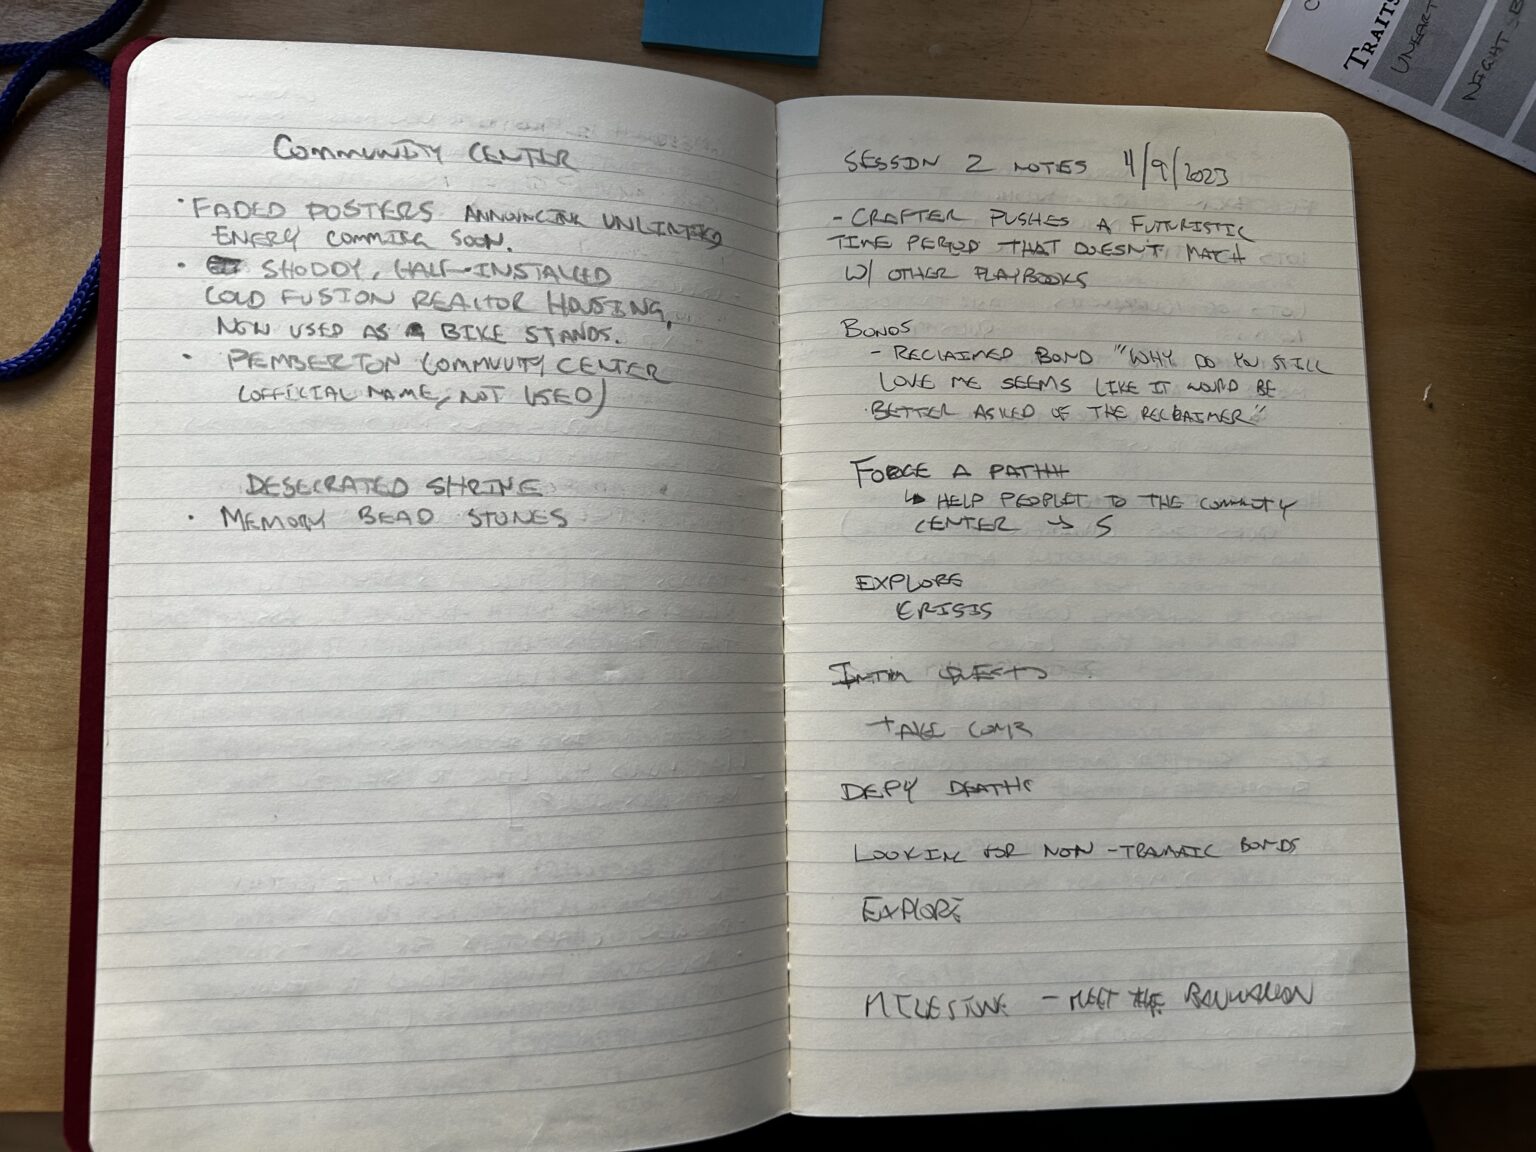 COMMUNITY CENTER
• FADED POSTERS ANNOUNCING UNLIMITED
ENERY COMMING SOON.
• SHODDY, HALF-INSTALLED
COLD FUSION REACTOR HOUSING,
NOW USED AS A BIKE STANDS.
• PEMBERTON COMMUNITY CENTER
(OFFICIAL NAME, NOT USED)
DESECRATED SHRINE
• MEMORY BEAD STONES
SESSION 2 NOTES 4/9/2023
- CRAFTER PUSHES A FUTURISTIC
TIME PERIOD THAT DOESN'T MATCH
W/ OTHER PLAYBOOKS
BONDS
- RECLAIMED BOND "WHY DO YOU STILL
LOVE ME SEEMS LIKE IT WOULD BE
BETTER ASKED OF THE RECLAIMER"
FORGE A PATH
↳ HELP PEOPLE TO THE COMMUNITY
CENTER → 5
EXPLORE
CRISIS
QUESTS
TAKE
DEFY DEATH
LOOKING FOR NON-TRAUMATIC BONDS
EXPLORE
MILESTONE - MEET THE
TRAITS
UNEART
NIGHT